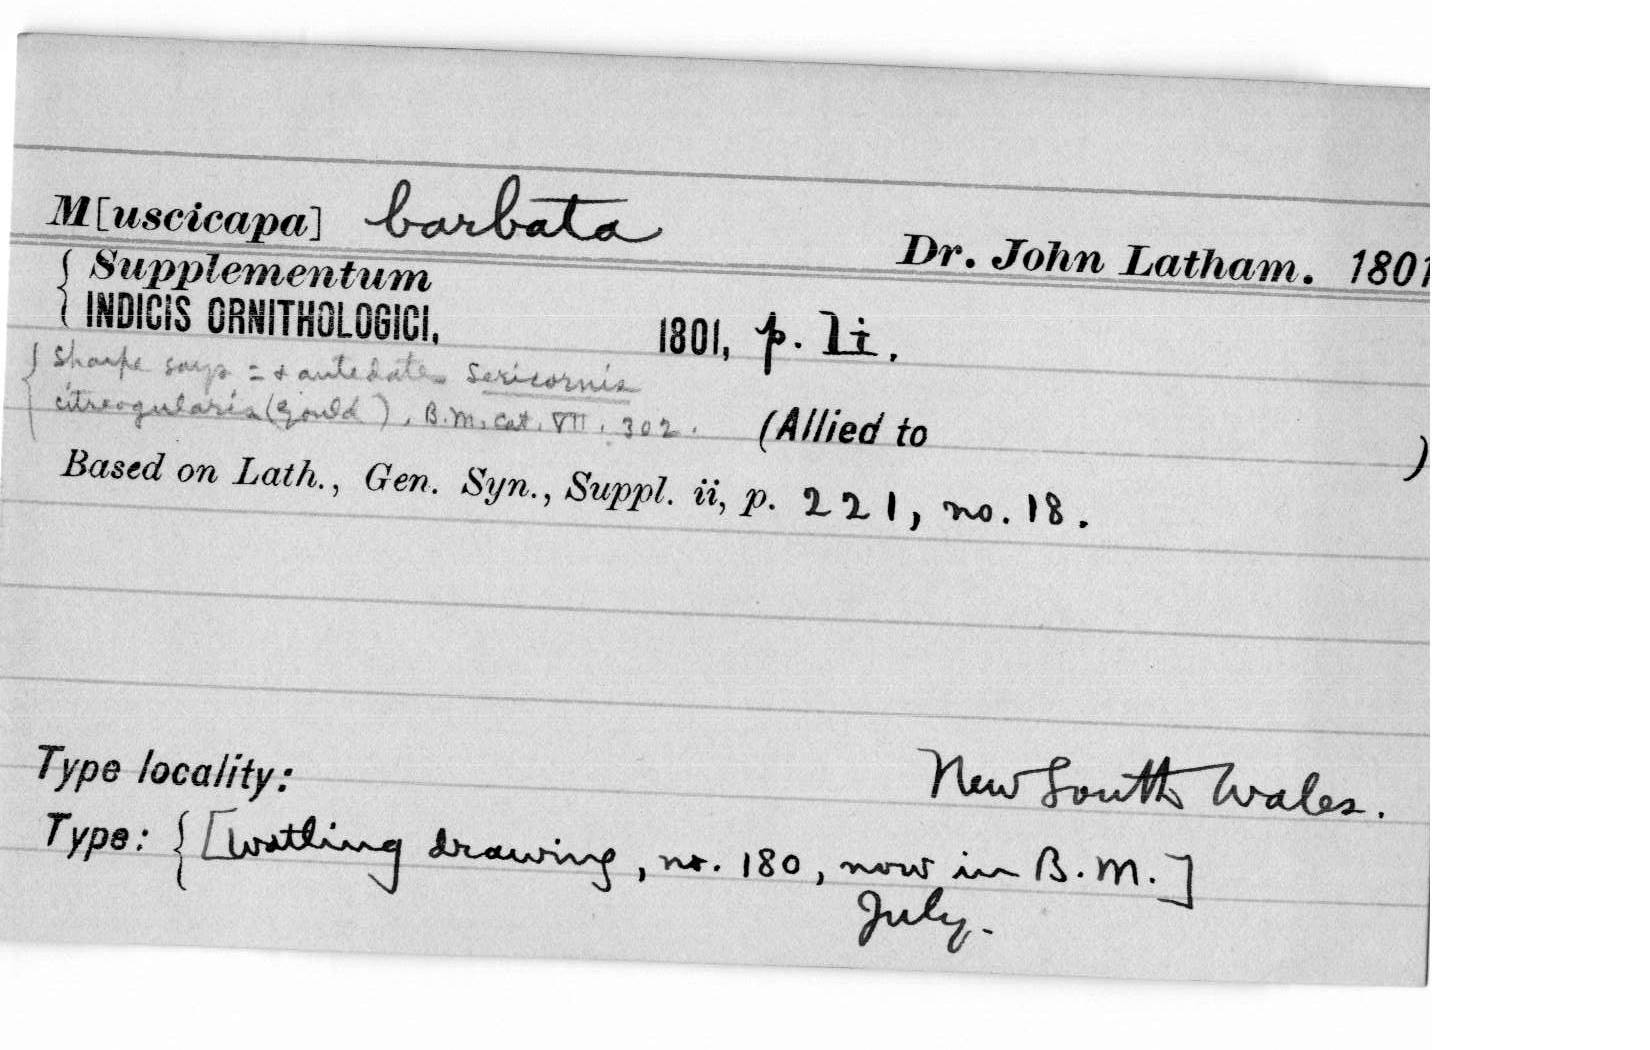 M[uscicapa] barbata
Dr. John Latham. 1801
{ Supplementum
INDICIS ORNITHOLOGICI, 1801, p. li.
{ Sharpe says = & antedates Sericornis
citreogularis (Gould), B.M. Cat. VII. 302.
(Allied to )
Based on Lath., Gen. Syn., Suppl. ii, p. 221, no. 18.
Type locality: New South Wales.
Type: { [Watling drawing, no. 180, now in B.M.]
July.